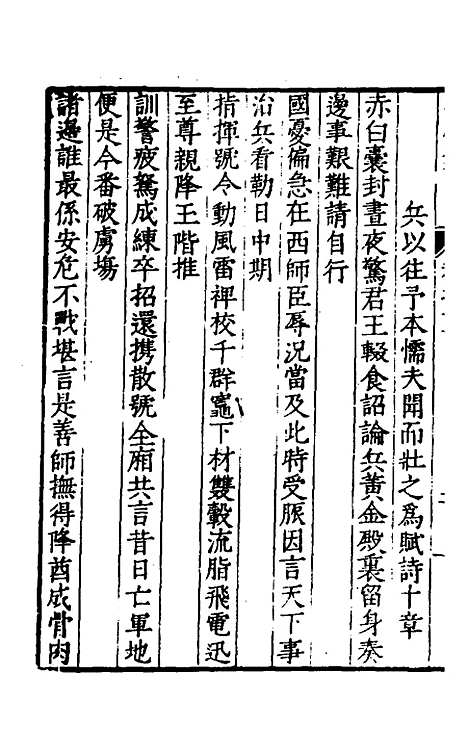 兵以往予本懦夫聞而壯之爲賦詩十章
赤白囊封晝夜驚君王輟食詔論兵黃金殿裏留身奏
邊事艱難請自行
國憂偏急在西師臣辱況當及此時受脤因言天下事
治兵看勒日中期
指揮號令動風雷裨校千群竈下材雙轂流脂飛電迅
至尊親降王階推
訓警疲駑成練卒招還携散號全廂共言昔日亡軍地
便是今番破虜塲
諸邊誰最係安危不戰堪言是善師撫得降酋成骨肉